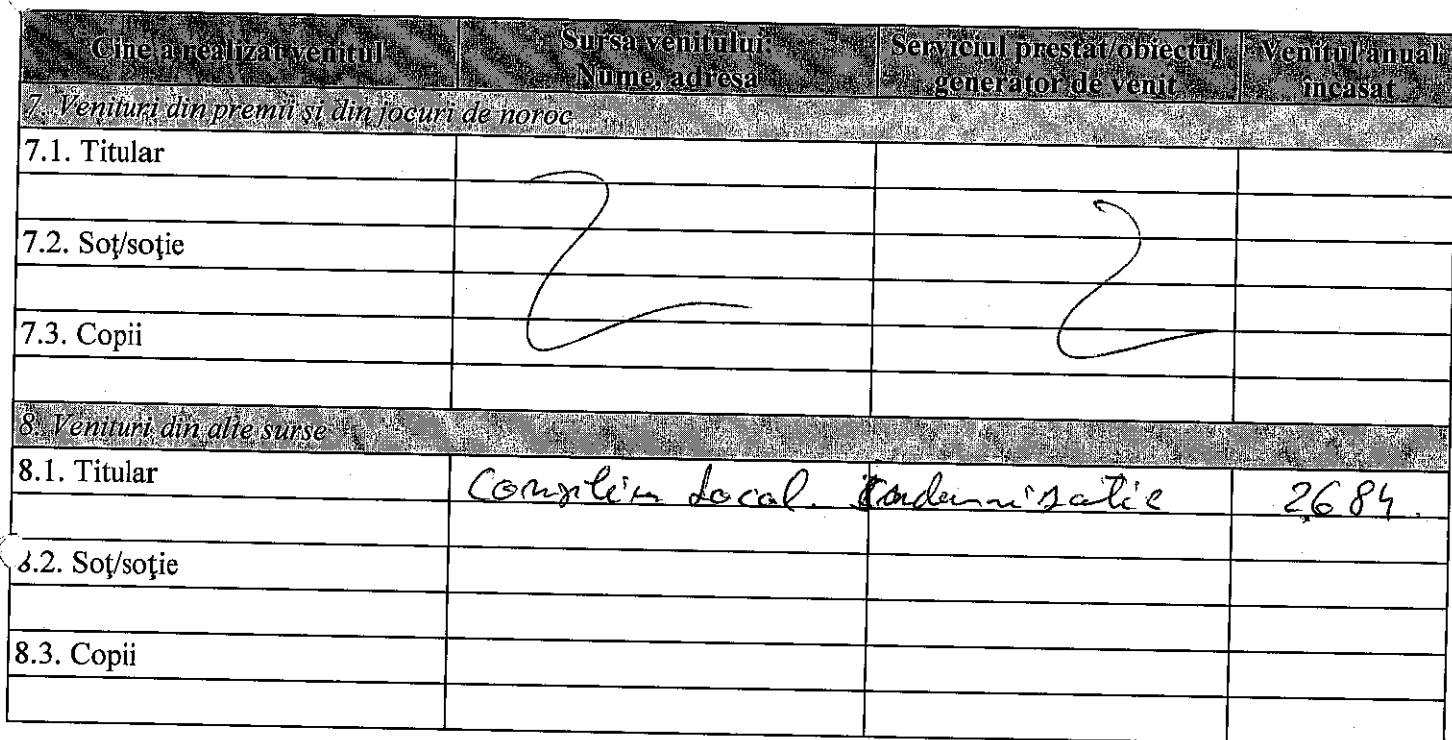 Cine a realizat venitul Sursa venitului: Nume, adresa Serviciul prestat/obiectul generator de venit Venitul anual încasat
7. Venituri din premii şi din jocuri de noroc
7.1. Titular
7.2. Soţ/soţie
7.3. Copii
8. Venituri din alte surse
8.1. Titular Local. Indemnisatie 2684.
8.2. Soţ/soţie
8.3. Copii